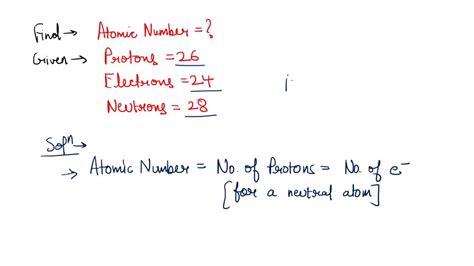 Find → Atomic Number = ?
Given → Protons = 26
Electrons = 24
Neutrons = 28
Solⁿ →
→ Atomic Number = No. of Protons = No. of e⁻
[for a neutral atom]